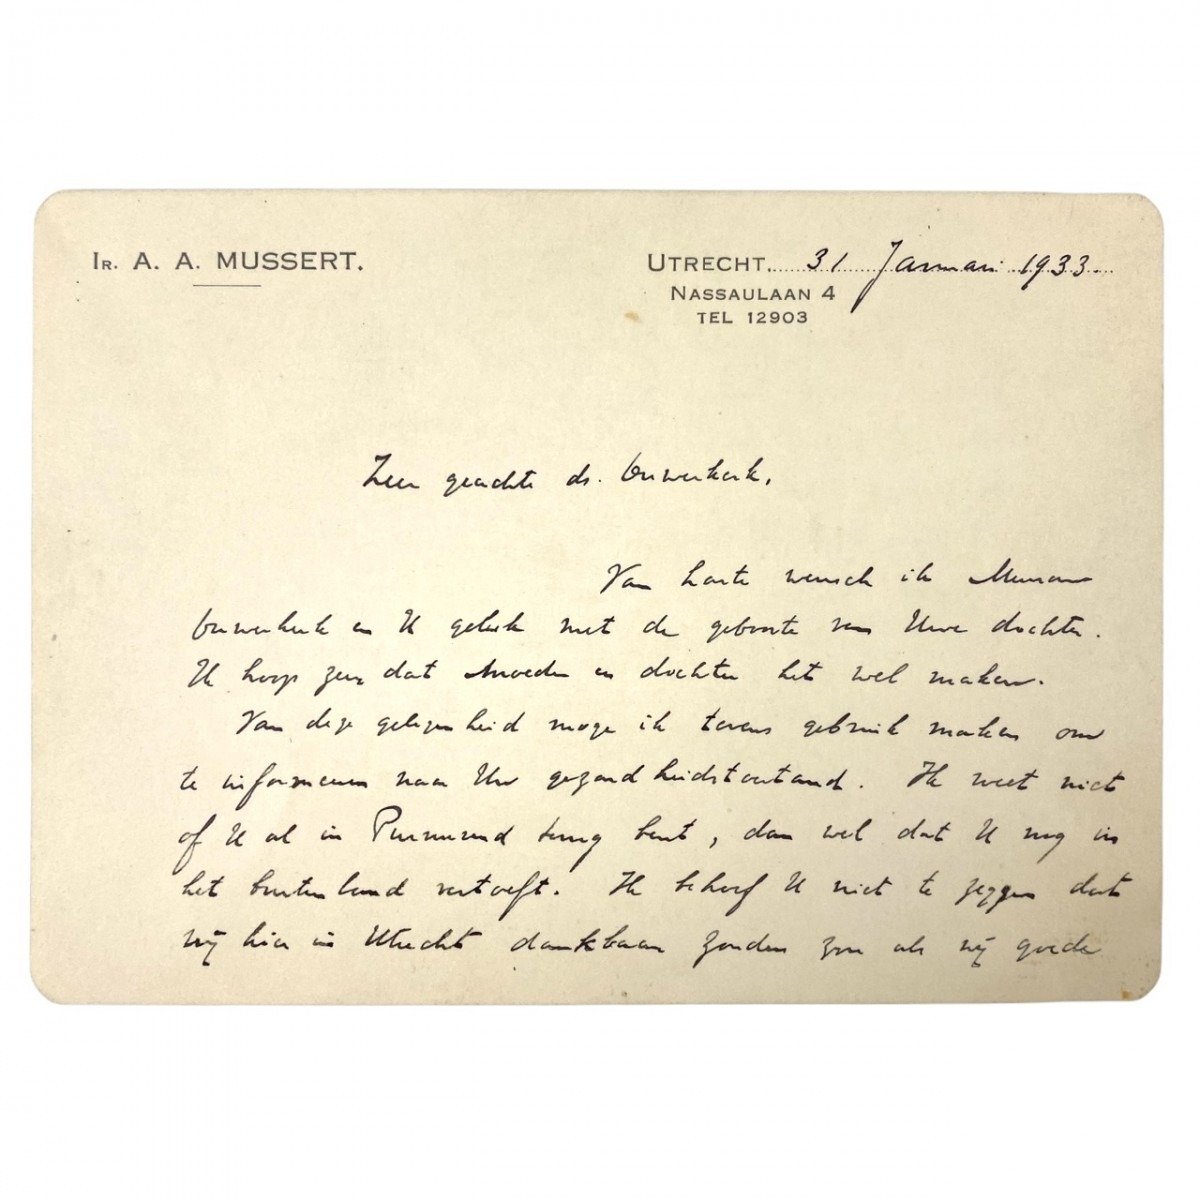 IR. A. A. MUSSERT.
UTRECHT, 31 Januari 1933.
NASSAULAAN 4
TEL 12903
Zeer geachte ds. Ouwerkerk,
Van harte wensch ik Mevrouw
Ouwerkerk en U geluk met de geboorte van Uwe dochter.
Ik hoop zeer dat moeder en dochter het wel maken.
Van deze gelegenheid moge ik tevens gebruik maken om
te informeeren naar Uw gezondheidstoestand. Ik weet niet
of U al in Purmerend terug bent, dan wel dat U nog in
het buitenland vertoeft. Ik behoef U niet te zeggen dat
wij hier in Utrecht dankbaar zouden zijn als wij goede